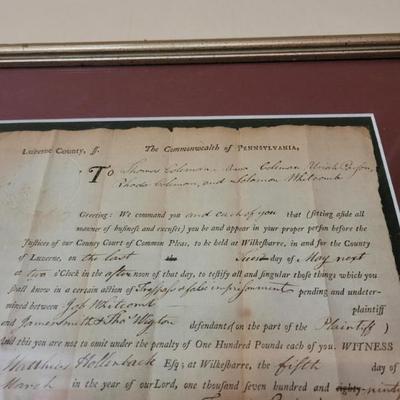 Luzerne County, ss. The Commonwealth of PENNSYLVANIA,
To Thomas Coleman Anna Coleman Uriah Parson,
Rhoda Coleman, and Solomon Whitcomb
Greeting: We command you and each of you that (sitting aside all
manner of business and excuses) you be and appear in your proper person before the
Justices of our County Court of Common Pleas, to be held at Wilkesbarre, in and for the County
of Luzerne, on the last day of May next
at two o'Clock in the afternoon of that day, to testify all and singular those things which you
shall know in a certain action of Trespass & false imprisonment pending and undeter-
mined between Job Whitcomb plaintiff
and James Smith & Thos Wigton defendants (on the part of the Plaintiff)
And this you are not to omit under the penalty of One Hundred Pounds each of you. WITNESS
Matthias Hollenback Esq; at Wilkesbarre, the fifth day of
March in the year of our Lord, one thousand seven hundred and eighty-nine